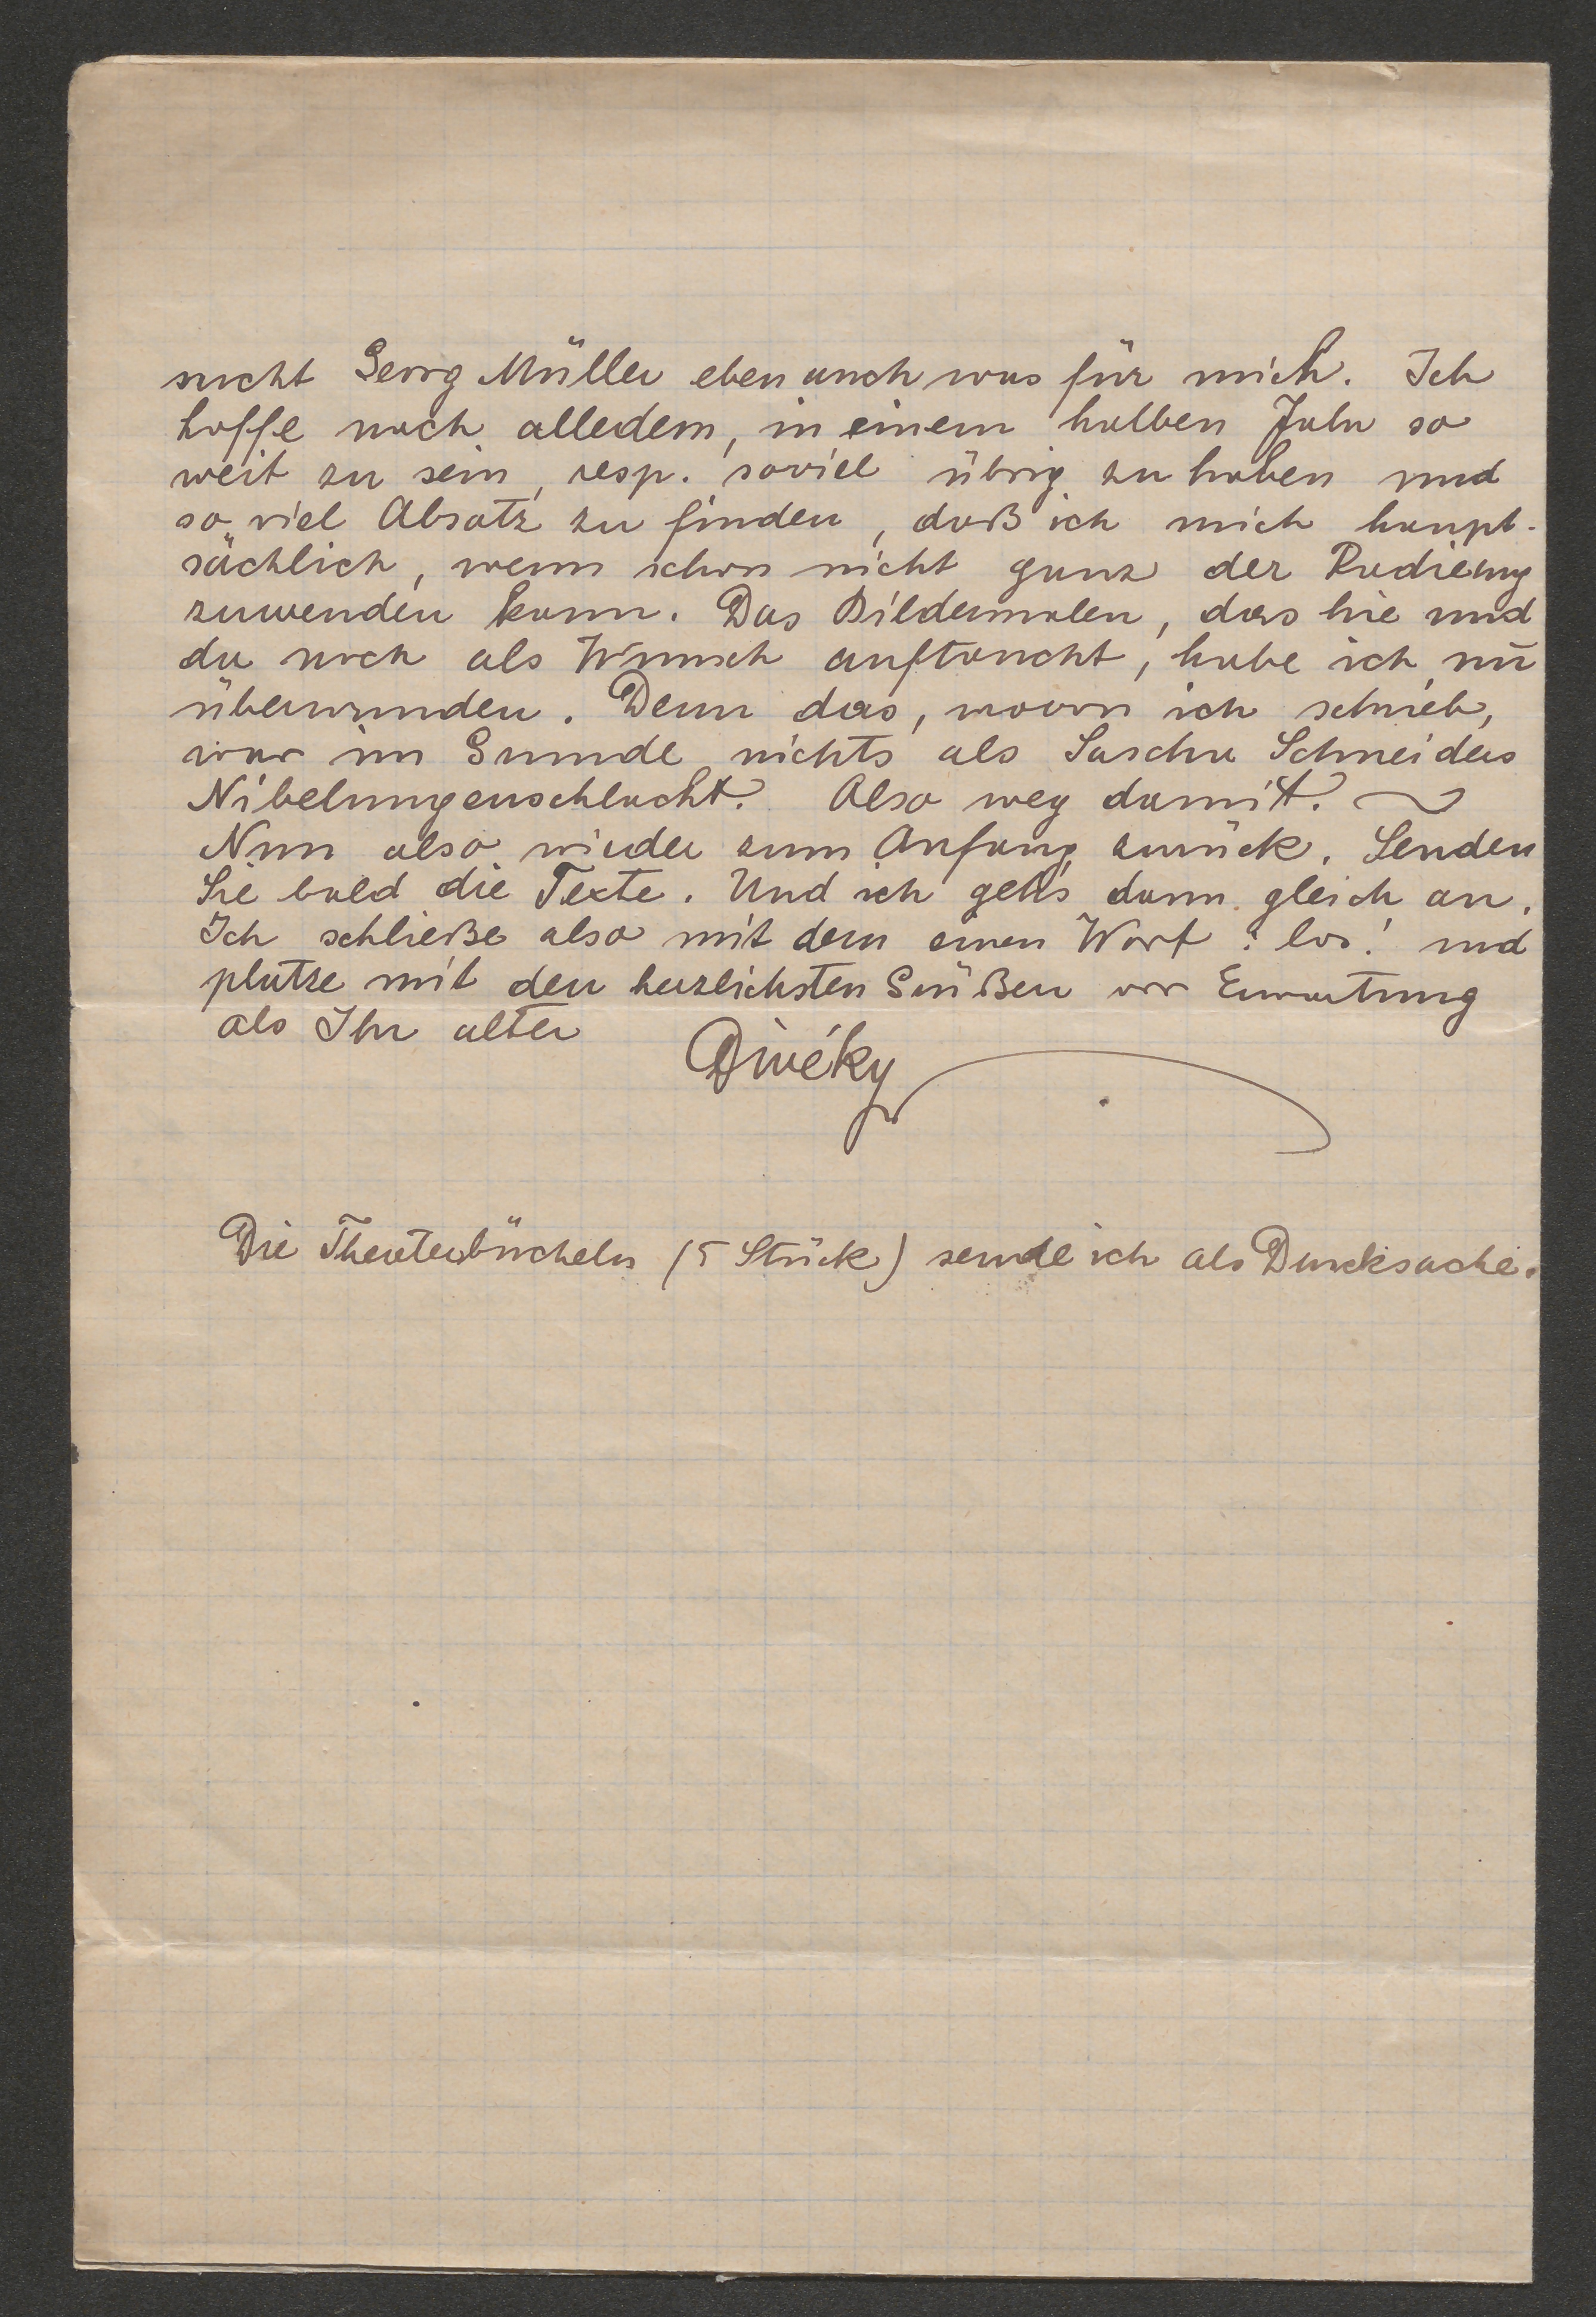 sucht Georg Müller eben auch was für mich. Ich
hoffe nach alledem, in einem halben Jahr so
weit zu sein, resp. soviel übrig zu haben und
so viel Absatz zu finden, daß ich mich haupt-
sächlich, wenn schon nicht ganz der Radierung
zuwenden kann. Das Bildermalen, das hie und
da noch als Wunsch auftaucht, habe ich
überwunden. Denn das, wovon ich schrieb,
war im Grunde nichts als Sascha Schneiders
Nibelungenschlacht. Also weg damit. ~
Nun also wieder zum Anfang zurück. Senden
Sie bald die Texte. Und ich geh's dann gleich an.
Ich schließe also mit dem einen Wort: los! und
platze mit den herzlichsten Grüßen vor Erwartung
als Ihr alter
Divéky
Die Theaterbücheln (5 Stück) sende ich als Drucksache.